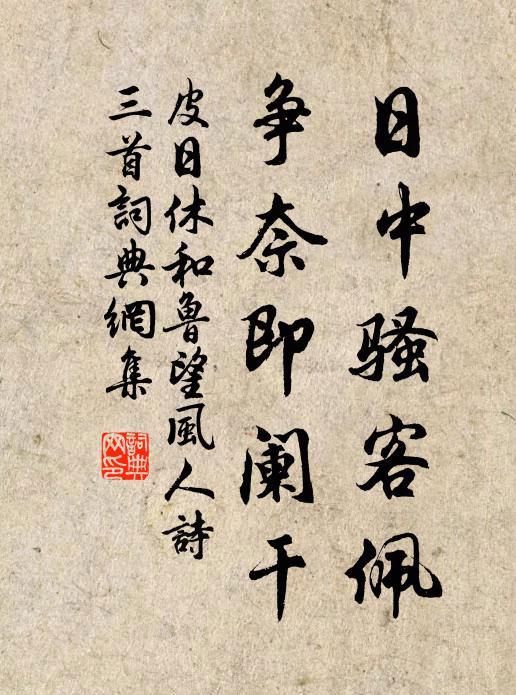 日中骚客佩
争奈即阑干
皮日休和鲁望風人詩
三首詞典網集
詞典网印